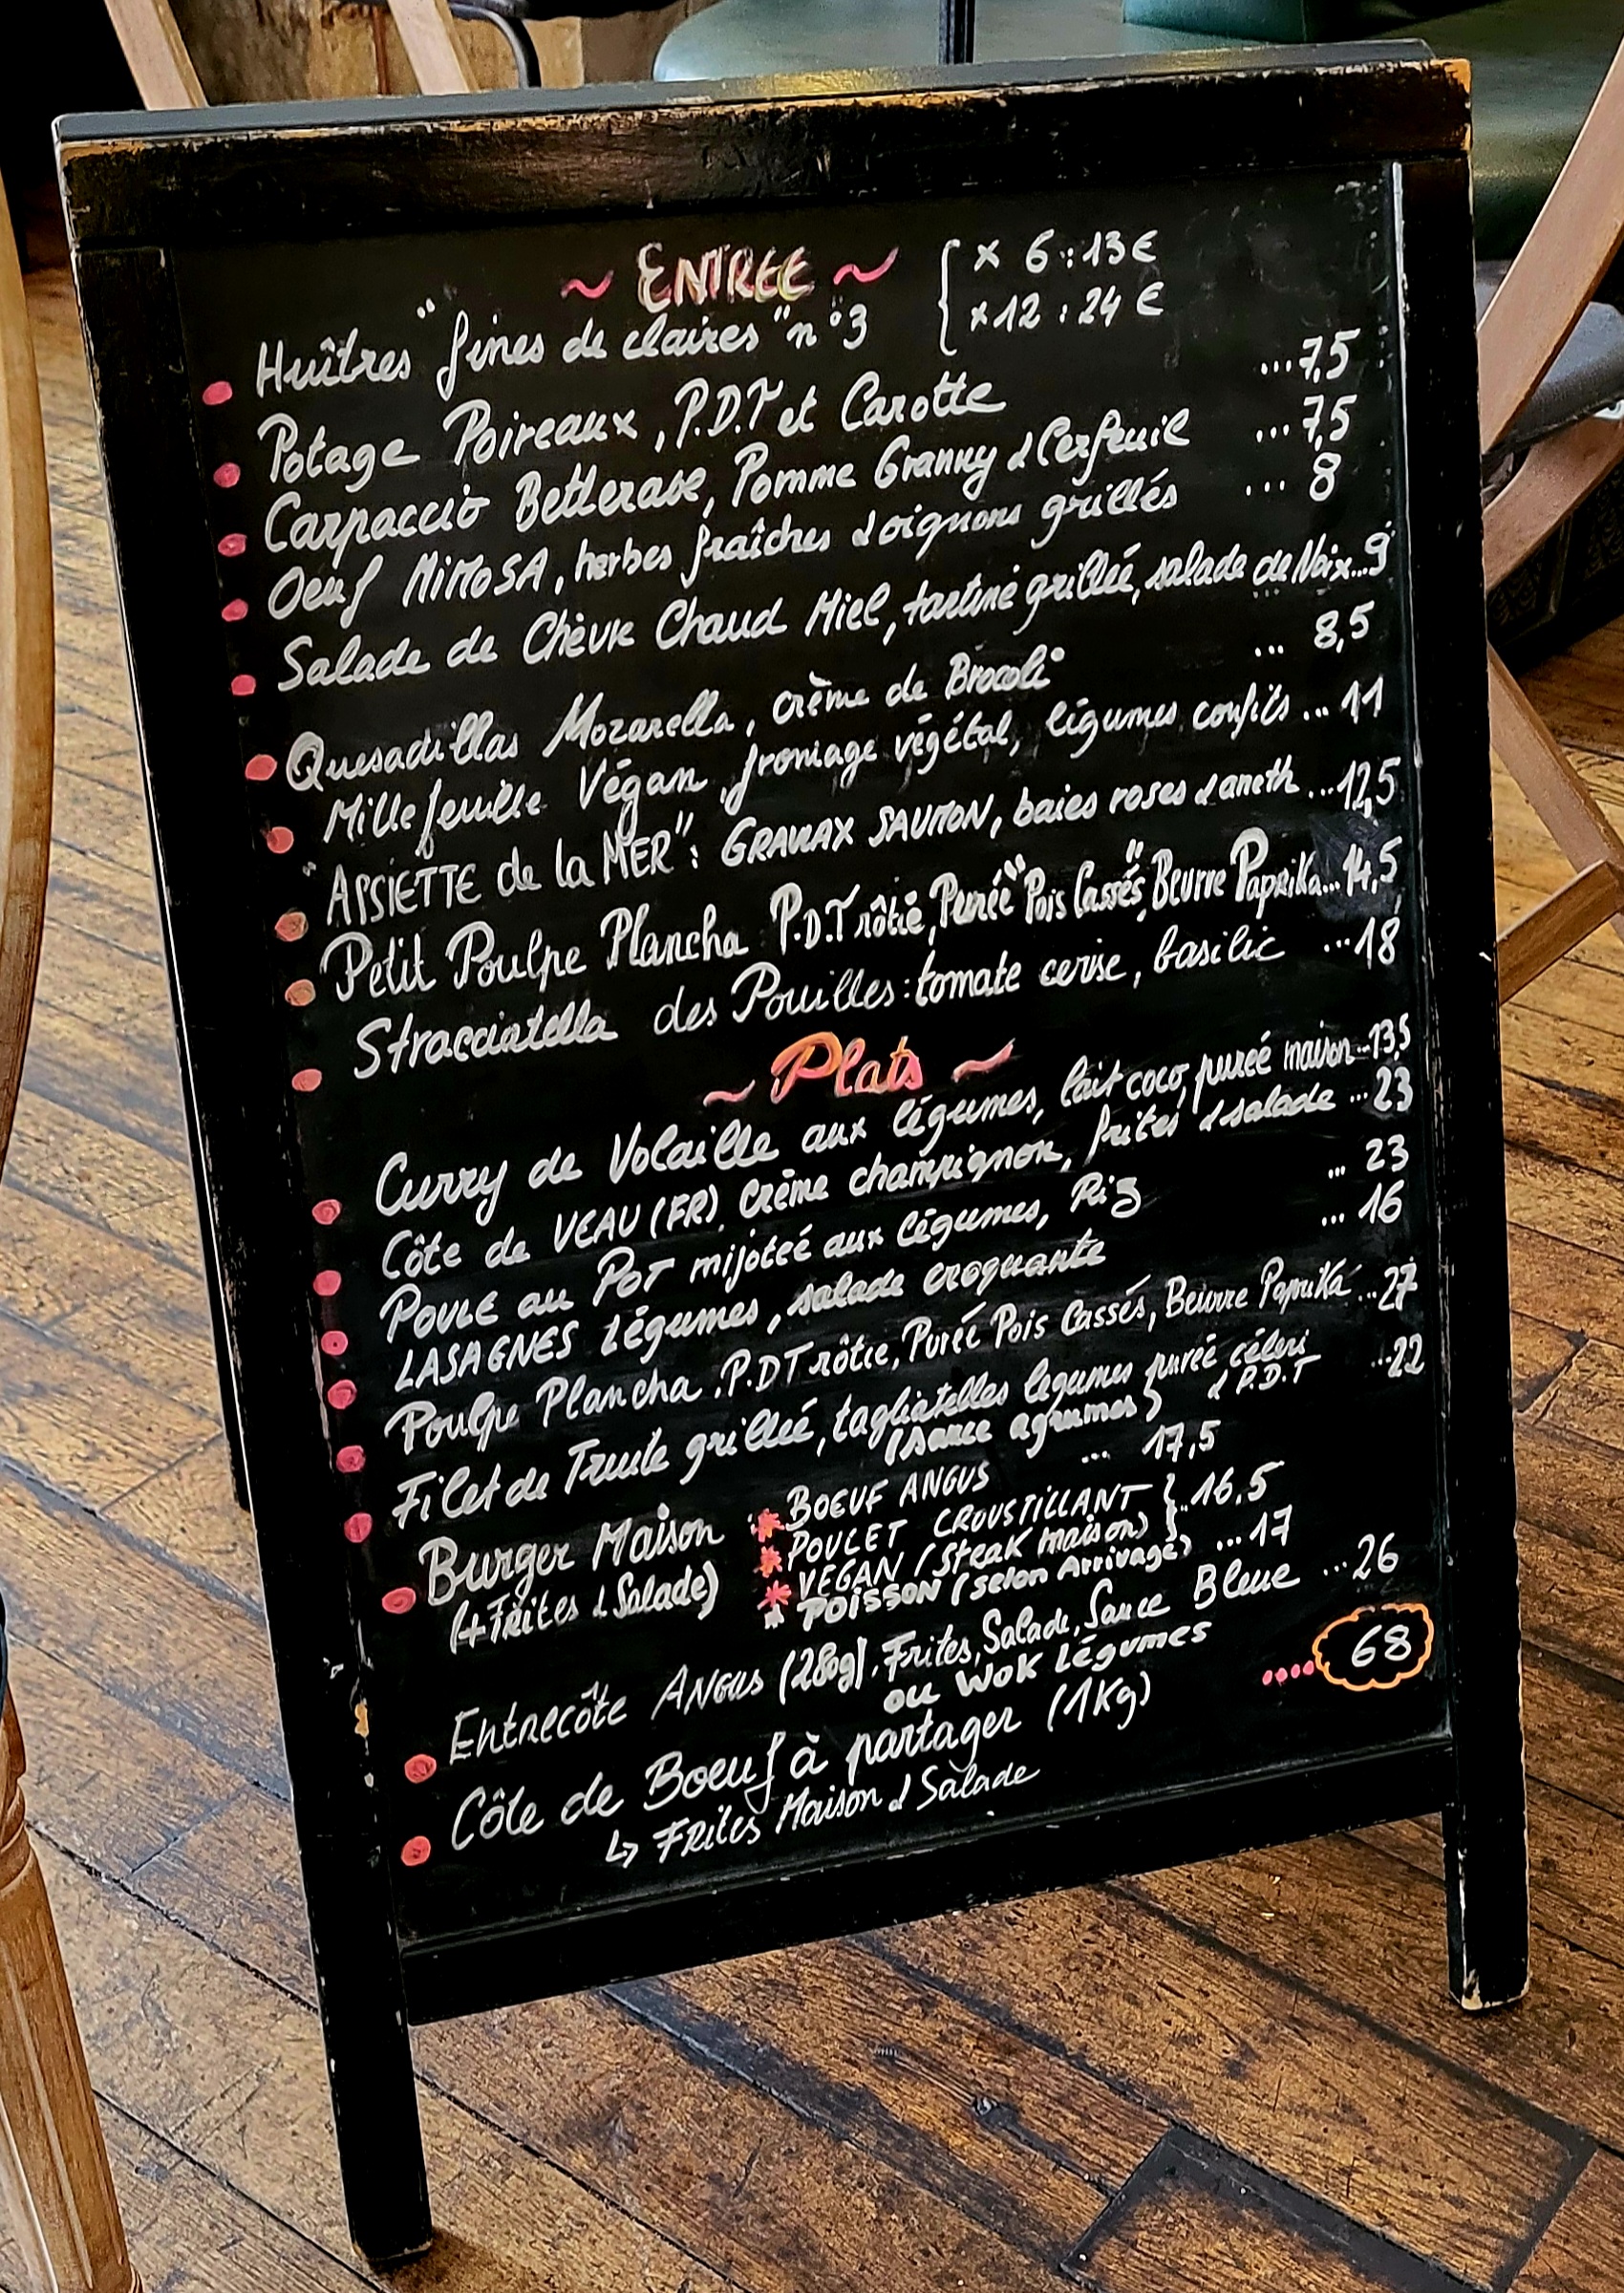 ~ ENTREE ~
Huîtres "fines de claires" n°3 { x 6 : 13 € x 12 : 24 €
Potage Poireaux, P.D.T et Carotte ...7,5
Carpaccio Betterave, Pomme Granny & Cerfeuil ...7,5
Oeuf MiMoSA, herbes fraîches & oignons grillés ...8
Salade de Chèvre Chaud Miel, tartine grillée, salade de Noix...9
Quesadillas Mozarella, crème de Brocoli ... 8,5
Millefeuille Végan, fromage végétal, légumes confits ...11
"ASSIETTE de la MER": GRAVLAX SAUMON, baies roses & aneth ...12,5
Petit Poulpe Plancha P.D.T rôtie, Purée "Pois Cassés", Beurre Paprika...14,5
Stracciatella des Pouilles: tomate cerise, basilic ...18
~ Plats ~
Curry de Volaille aux légumes, lait coco, purée maison...13,5
Côte de VEAU (FR), Crème champignon, frites & salade ...23
POULE au POT mijotée aux légumes, Riz ... 23
LASAGNES légumes, salade croquante ... 16
Poulpe Plancha, P.D.T rôtie, Purée Pois Cassés, Beurre Paprika ...27
Filet de Truite grillée, tagliatelles légumes purée céleri & P.D.T ...22
(sauce agrumes)
Burger Maison * BOEUF ANGUS ... 17,5
(+ Frites & Salade) * POULET CROUSTILLANT
* VEGAN (Steak maison) } ..16,5
* POISSON (selon Arrivage) ...17
Entrecôte ANGUS (280g), Frites, Salade, Sauce Bleue ...26
ou WOK Légumes
Côte de Boeuf à partager (1Kg) .... 68
↳ FRITES Maison & Salade